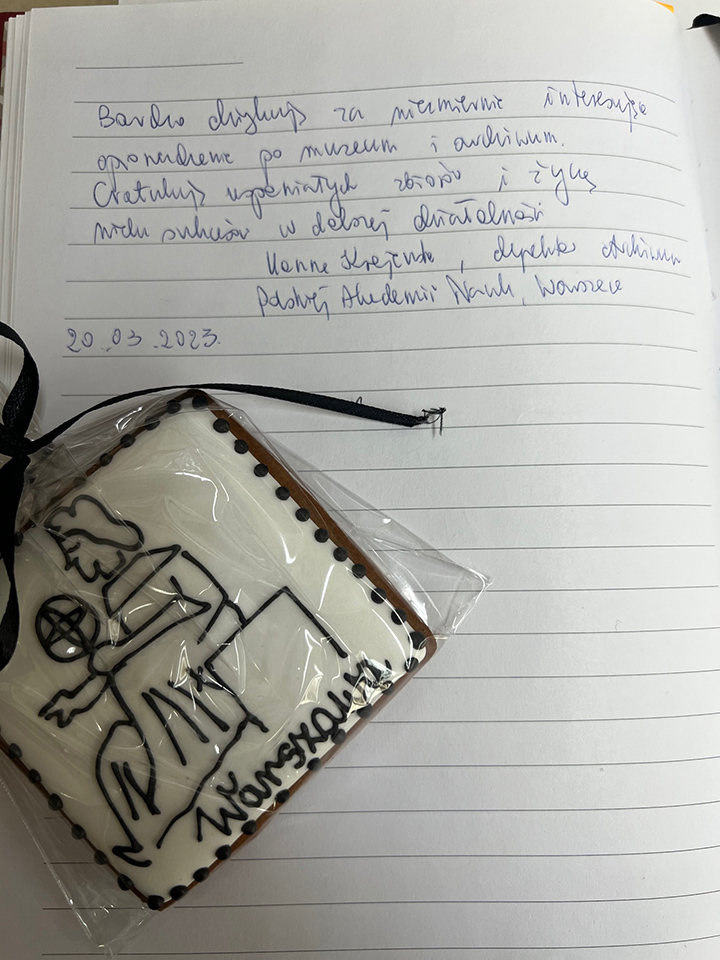 Bardzo dziękuję za niezmiernie interesujące
oprowadzenie po muzeum i archiwum.
Gratuluję wspaniałych zbiorów i życzę
wielu sukcesów w dalszej działalności
Hanna Krajewska, dyrektor Archiwum
Polskiej Akademii Nauk, Warszawa
20.03.2023.
Warszawa